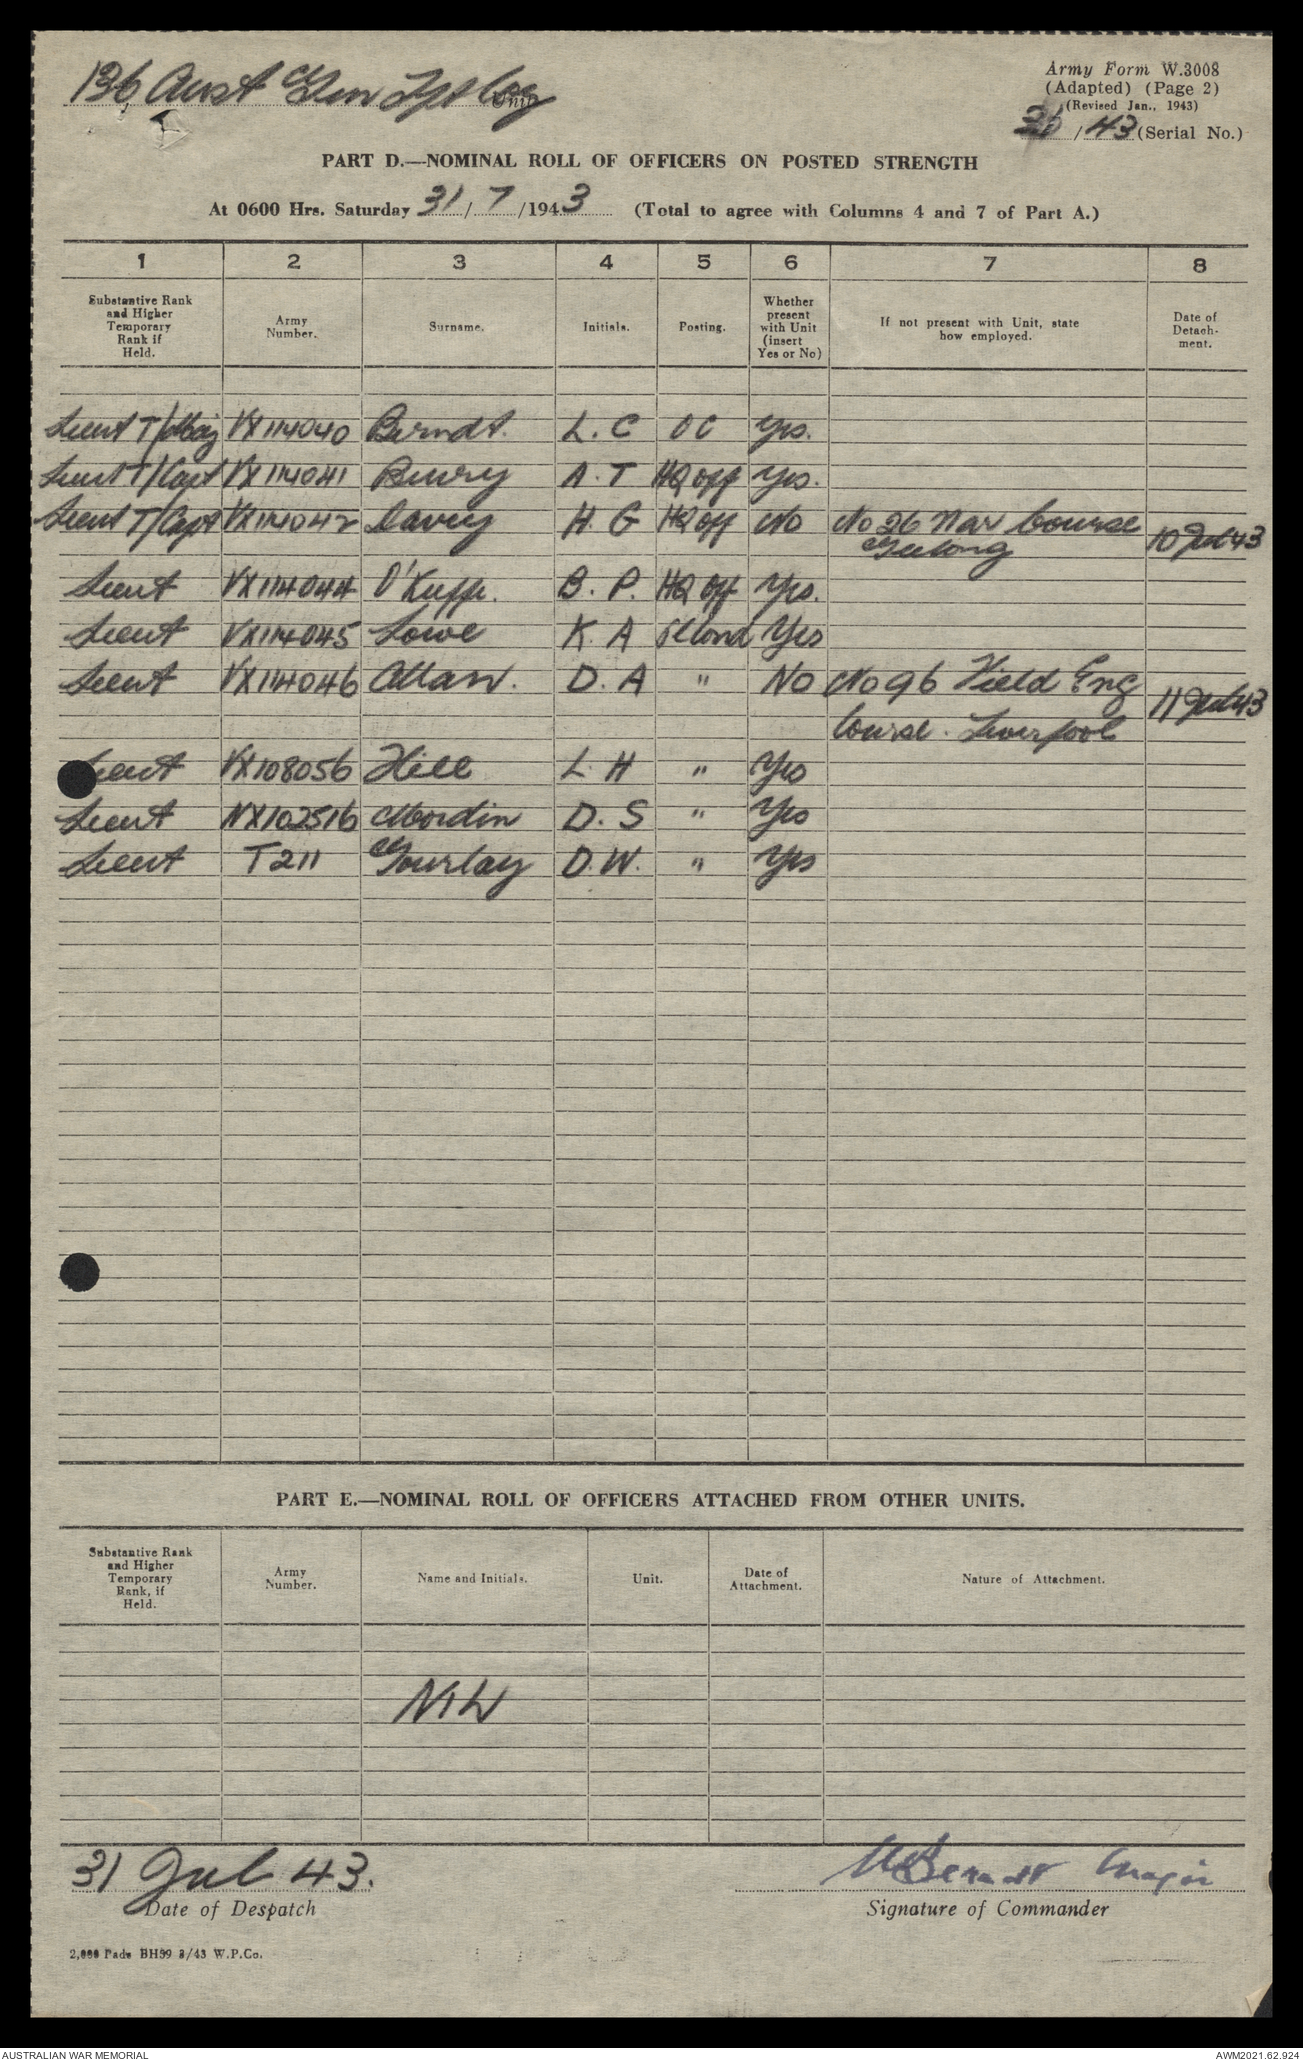 136 Aust Gen Tpt Coy
Unit
Army Form W.3008
(Adapted) (Page 2)
(Revised Jan., 1943)
/43 (Serial No.)
PART D.—NOMINAL ROLL OF OFFICERS ON POSTED STRENGTH
At 0600 Hrs. Saturday 31/7/1943 (Total to agree with Columns 4 and 7 of Part A.)
1 2 3 4 5 6 7 8
Substantive Rank and Higher Temporary Rank if Held. Army Number. Surname. Initials. Posting. Whether present with Unit (insert Yes or No) If not present with Unit, state how employed. Date of Detachment.
Lieut T/Maj VX114040 Berndt. L. C OC Yes.
Lieut T/Capt VX114041 Beury A. T HQ off Yes.
Lieut T/Capt VX114042 Davey H. G HQ off No No 26 War Course
Geelong 10 Jul 43
Lieut VX114044 O'Keffe. B. P. HQ off Yes.
Lieut VX114045 Lowe K. A Yes
Lieut VX114046 Allan. D. A " No No 96 Field Eng
Course. Liverpool 11 Jul 43
Lieut VX108056 Hill L. H " Yes
Lieut NX102516 Mordin D. S " Yes
Lieut T211 Gourlay D. W. " Yes
PART E.—NOMINAL ROLL OF OFFICERS ATTACHED FROM OTHER UNITS.
Substantive Rank and Higher Temporary Rank, if Held. Army Number. Name and Initials. Unit. Date of Attachment. Nature of Attachment.
NIL
31 Jul 43. Berndt Major
Date of Despatch Signature of Commander
Pads BH99 3/43 W.P.Co.
AUSTRALIAN WAR MEMORIAL AWM2021.62.924